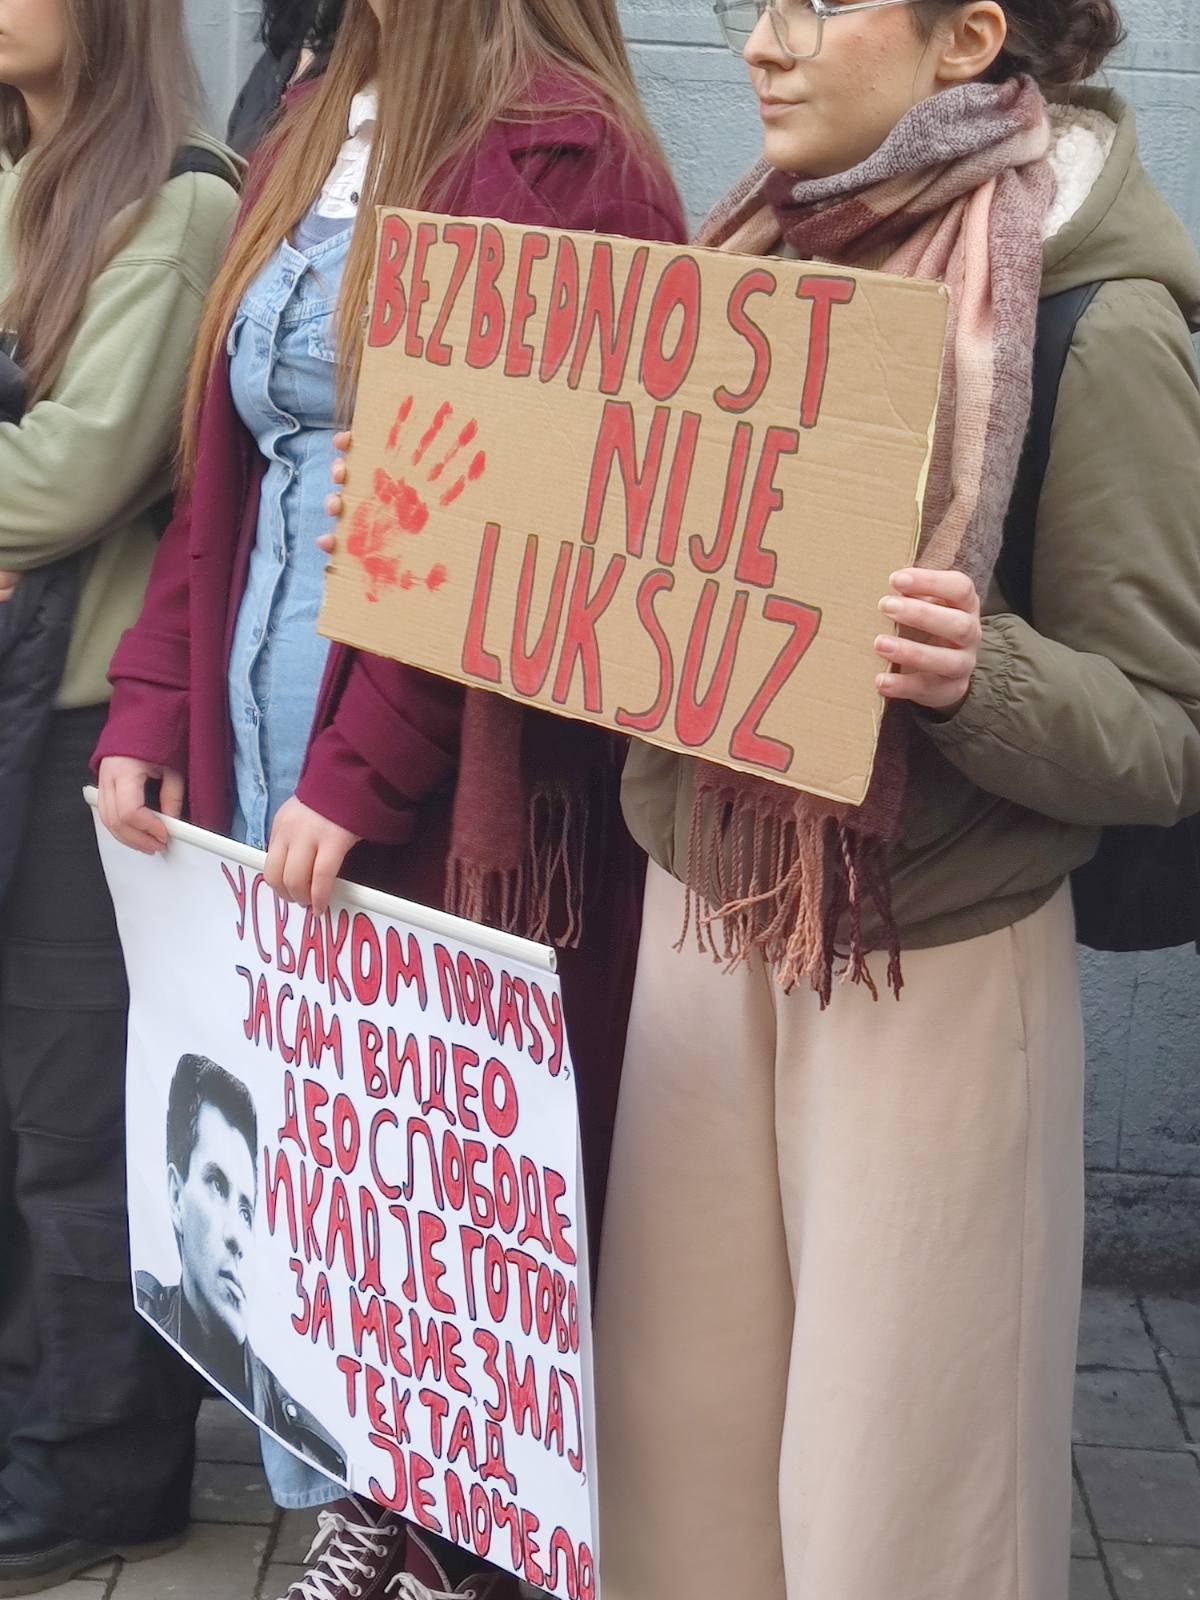 BEZBEDNOST
NIJE
LUKSUZ
У СВАКОМ ПОРАЗУ,
ЈА САМ ВИДЕО
ДЕО СЛОБОДЕ
И КАД ЈЕ ГОТОВО
ЗА МЕНЕ, ЗНАЈ,
ТЕК ТАД
ЈЕ ПОЧЕЛО